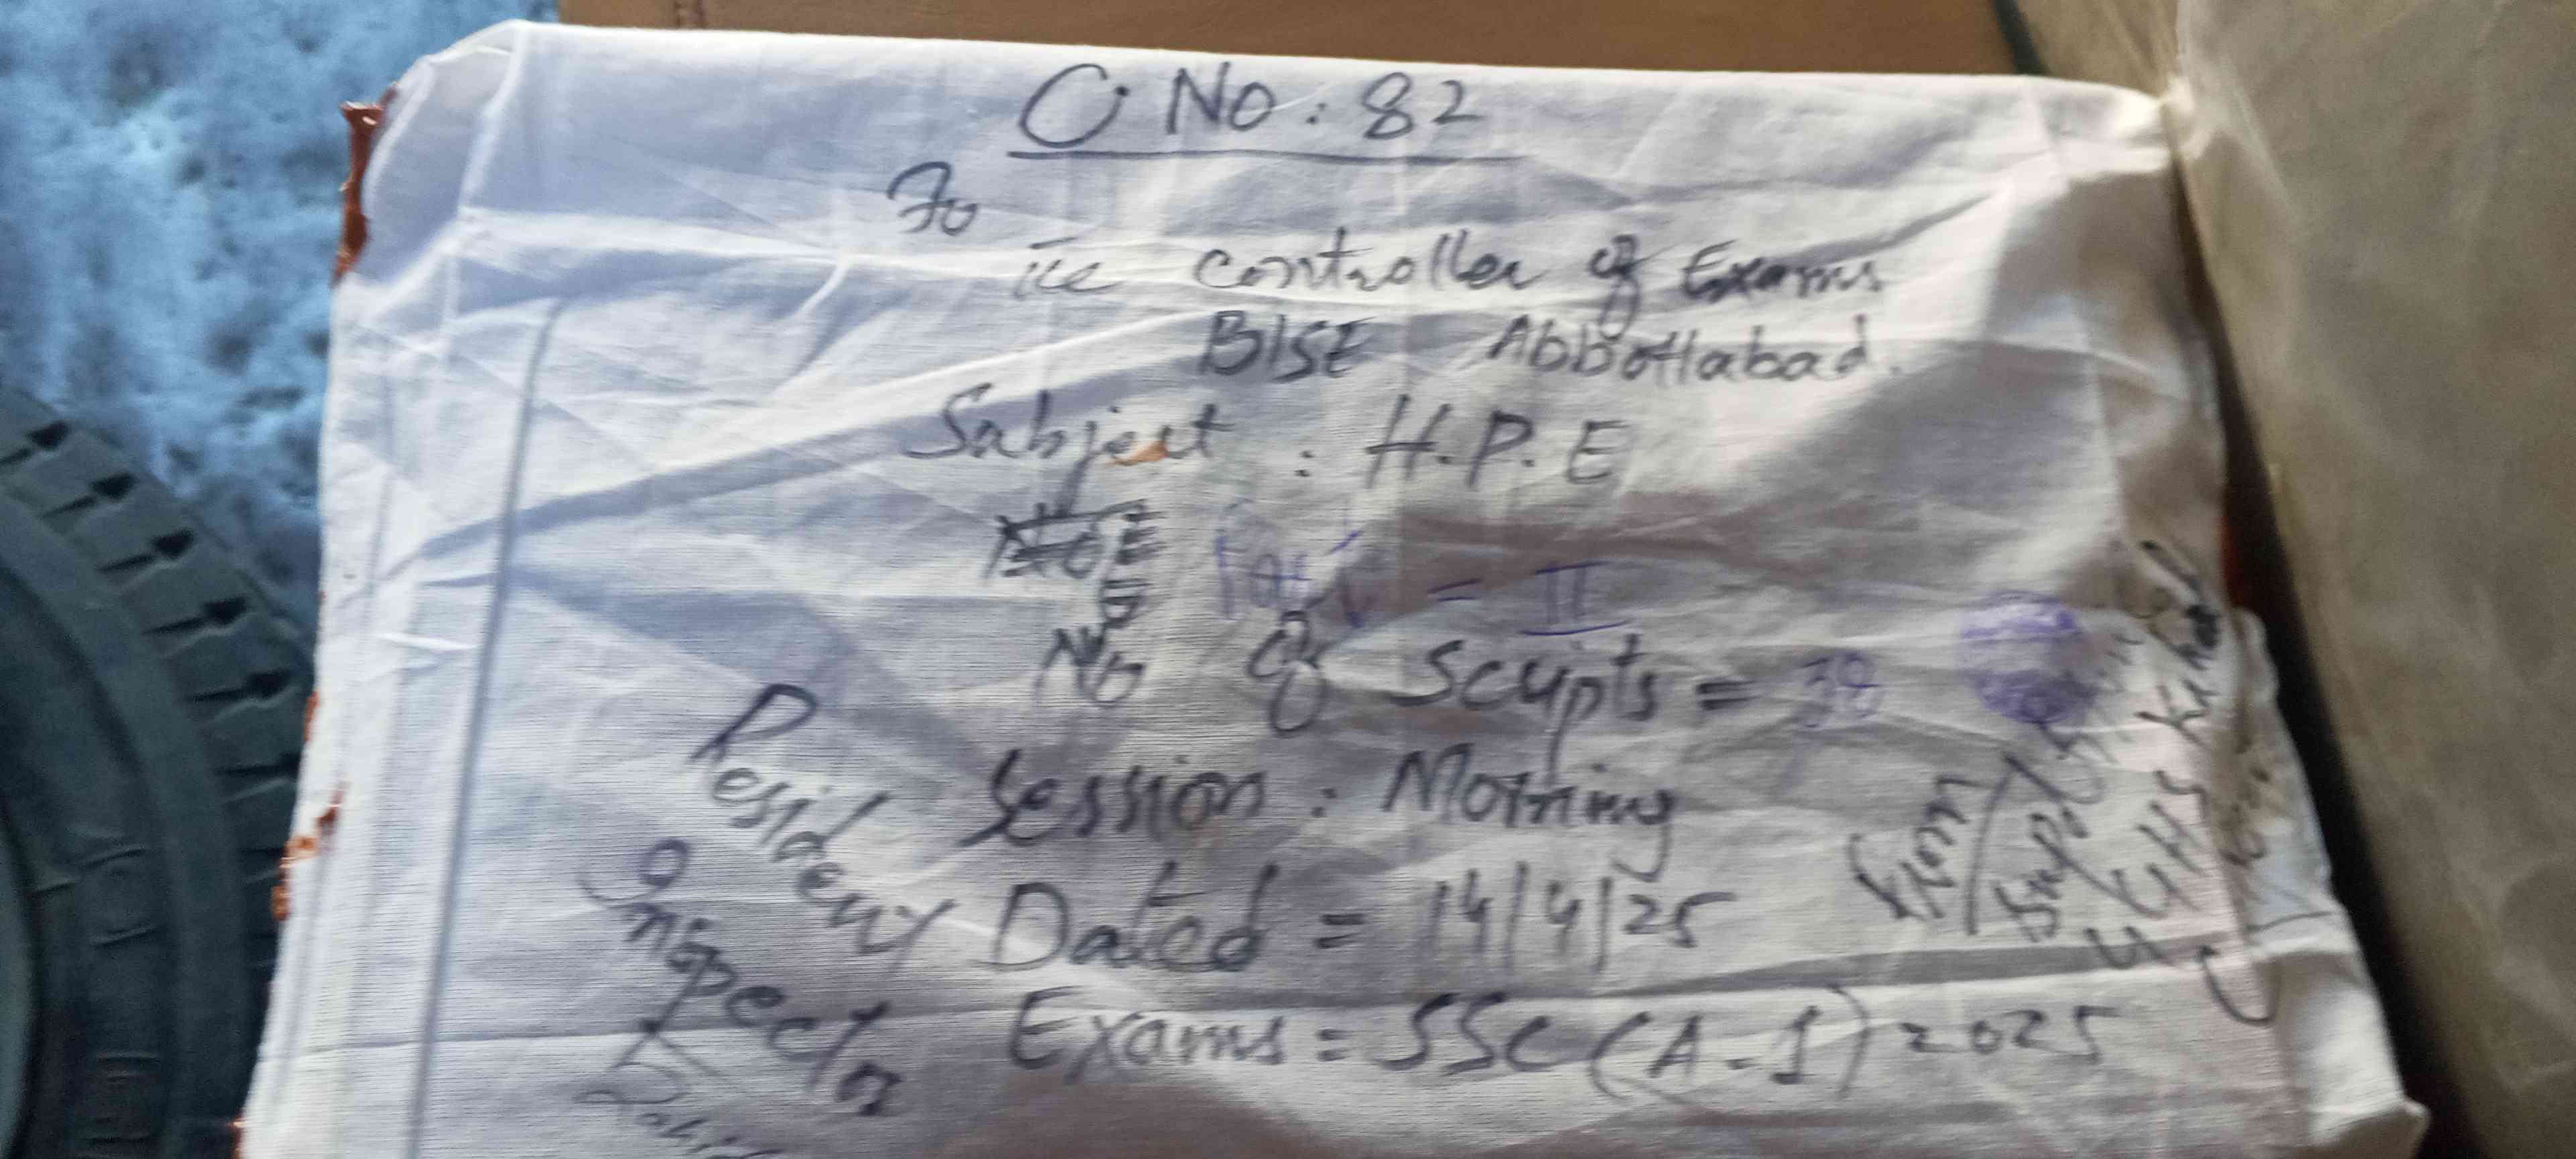 C No: 82
To
The controller of Exams
BISE Abbottabad.
Subject : H.P.E
Part - II
No of Scripts = 38
Session : Morning
Dated = 14/4/25
Exams = SSC (A-I) 2025
Residency
Inspector
Supdt
GHS